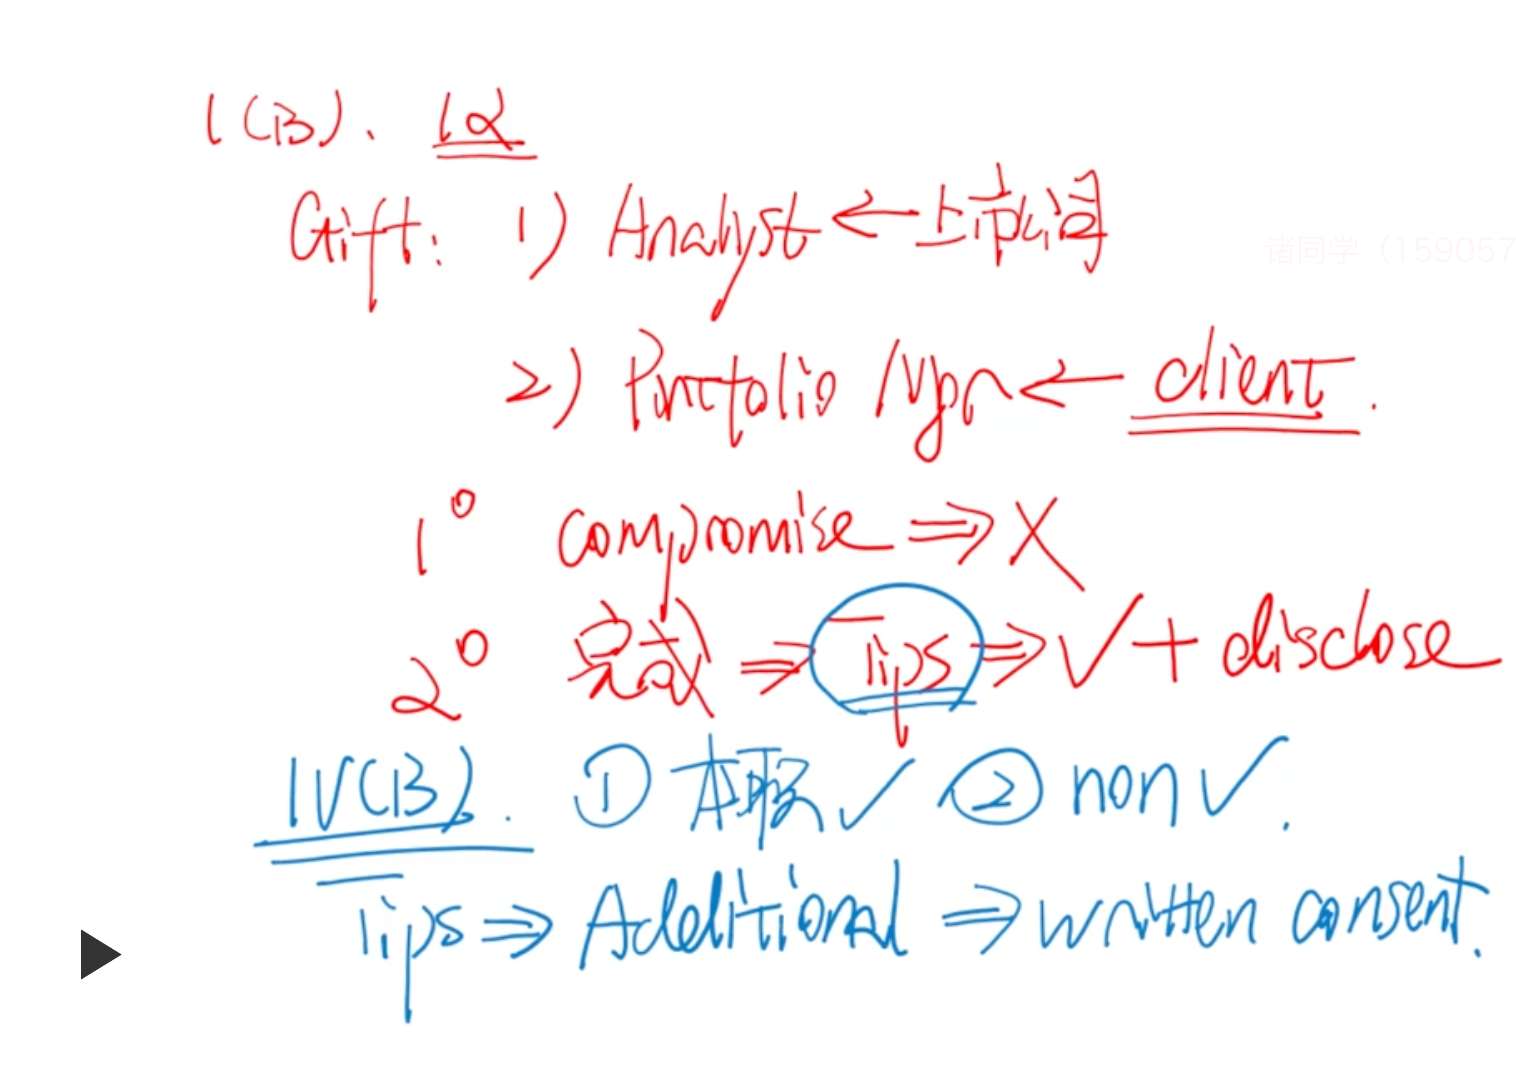 I(B). I&O
Gift: 1) Analyst ← 上市公司
诸同学（159057
2) Portfolio Mgr ← client.
1° compromise ⇒ X
2° 完成 ⇒ Tips ⇒ ✓ + disclose
IV(B). ① 本职 ✓ ② non ✓.
Tips ⇒ Additional ⇒ written consent.